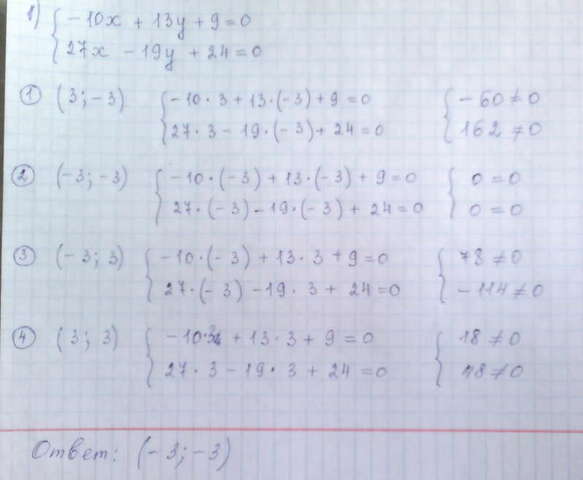 1) { -10x + 13y + 9 = 0
27x - 19y + 24 = 0
① (3; -3) { -10·3 + 13·(-3) + 9 = 0 { -60 ≠ 0
27·3 - 19·(-3) + 24 = 0 162 ≠ 0
② (-3; -3) { -10·(-3) + 13·(-3) + 9 = 0 { 0 = 0
27·(-3) - 19·(-3) + 24 = 0 0 = 0
③ (-3; 3) { -10·(-3) + 13·3 + 9 = 0 { 78 ≠ 0
27·(-3) - 19·3 + 24 = 0 -114 ≠ 0
④ (3; 3) { -10·3 + 13·3 + 9 = 0 { 18 ≠ 0
27·3 - 19·3 + 24 = 0 48 ≠ 0
Ответ: (-3; -3)